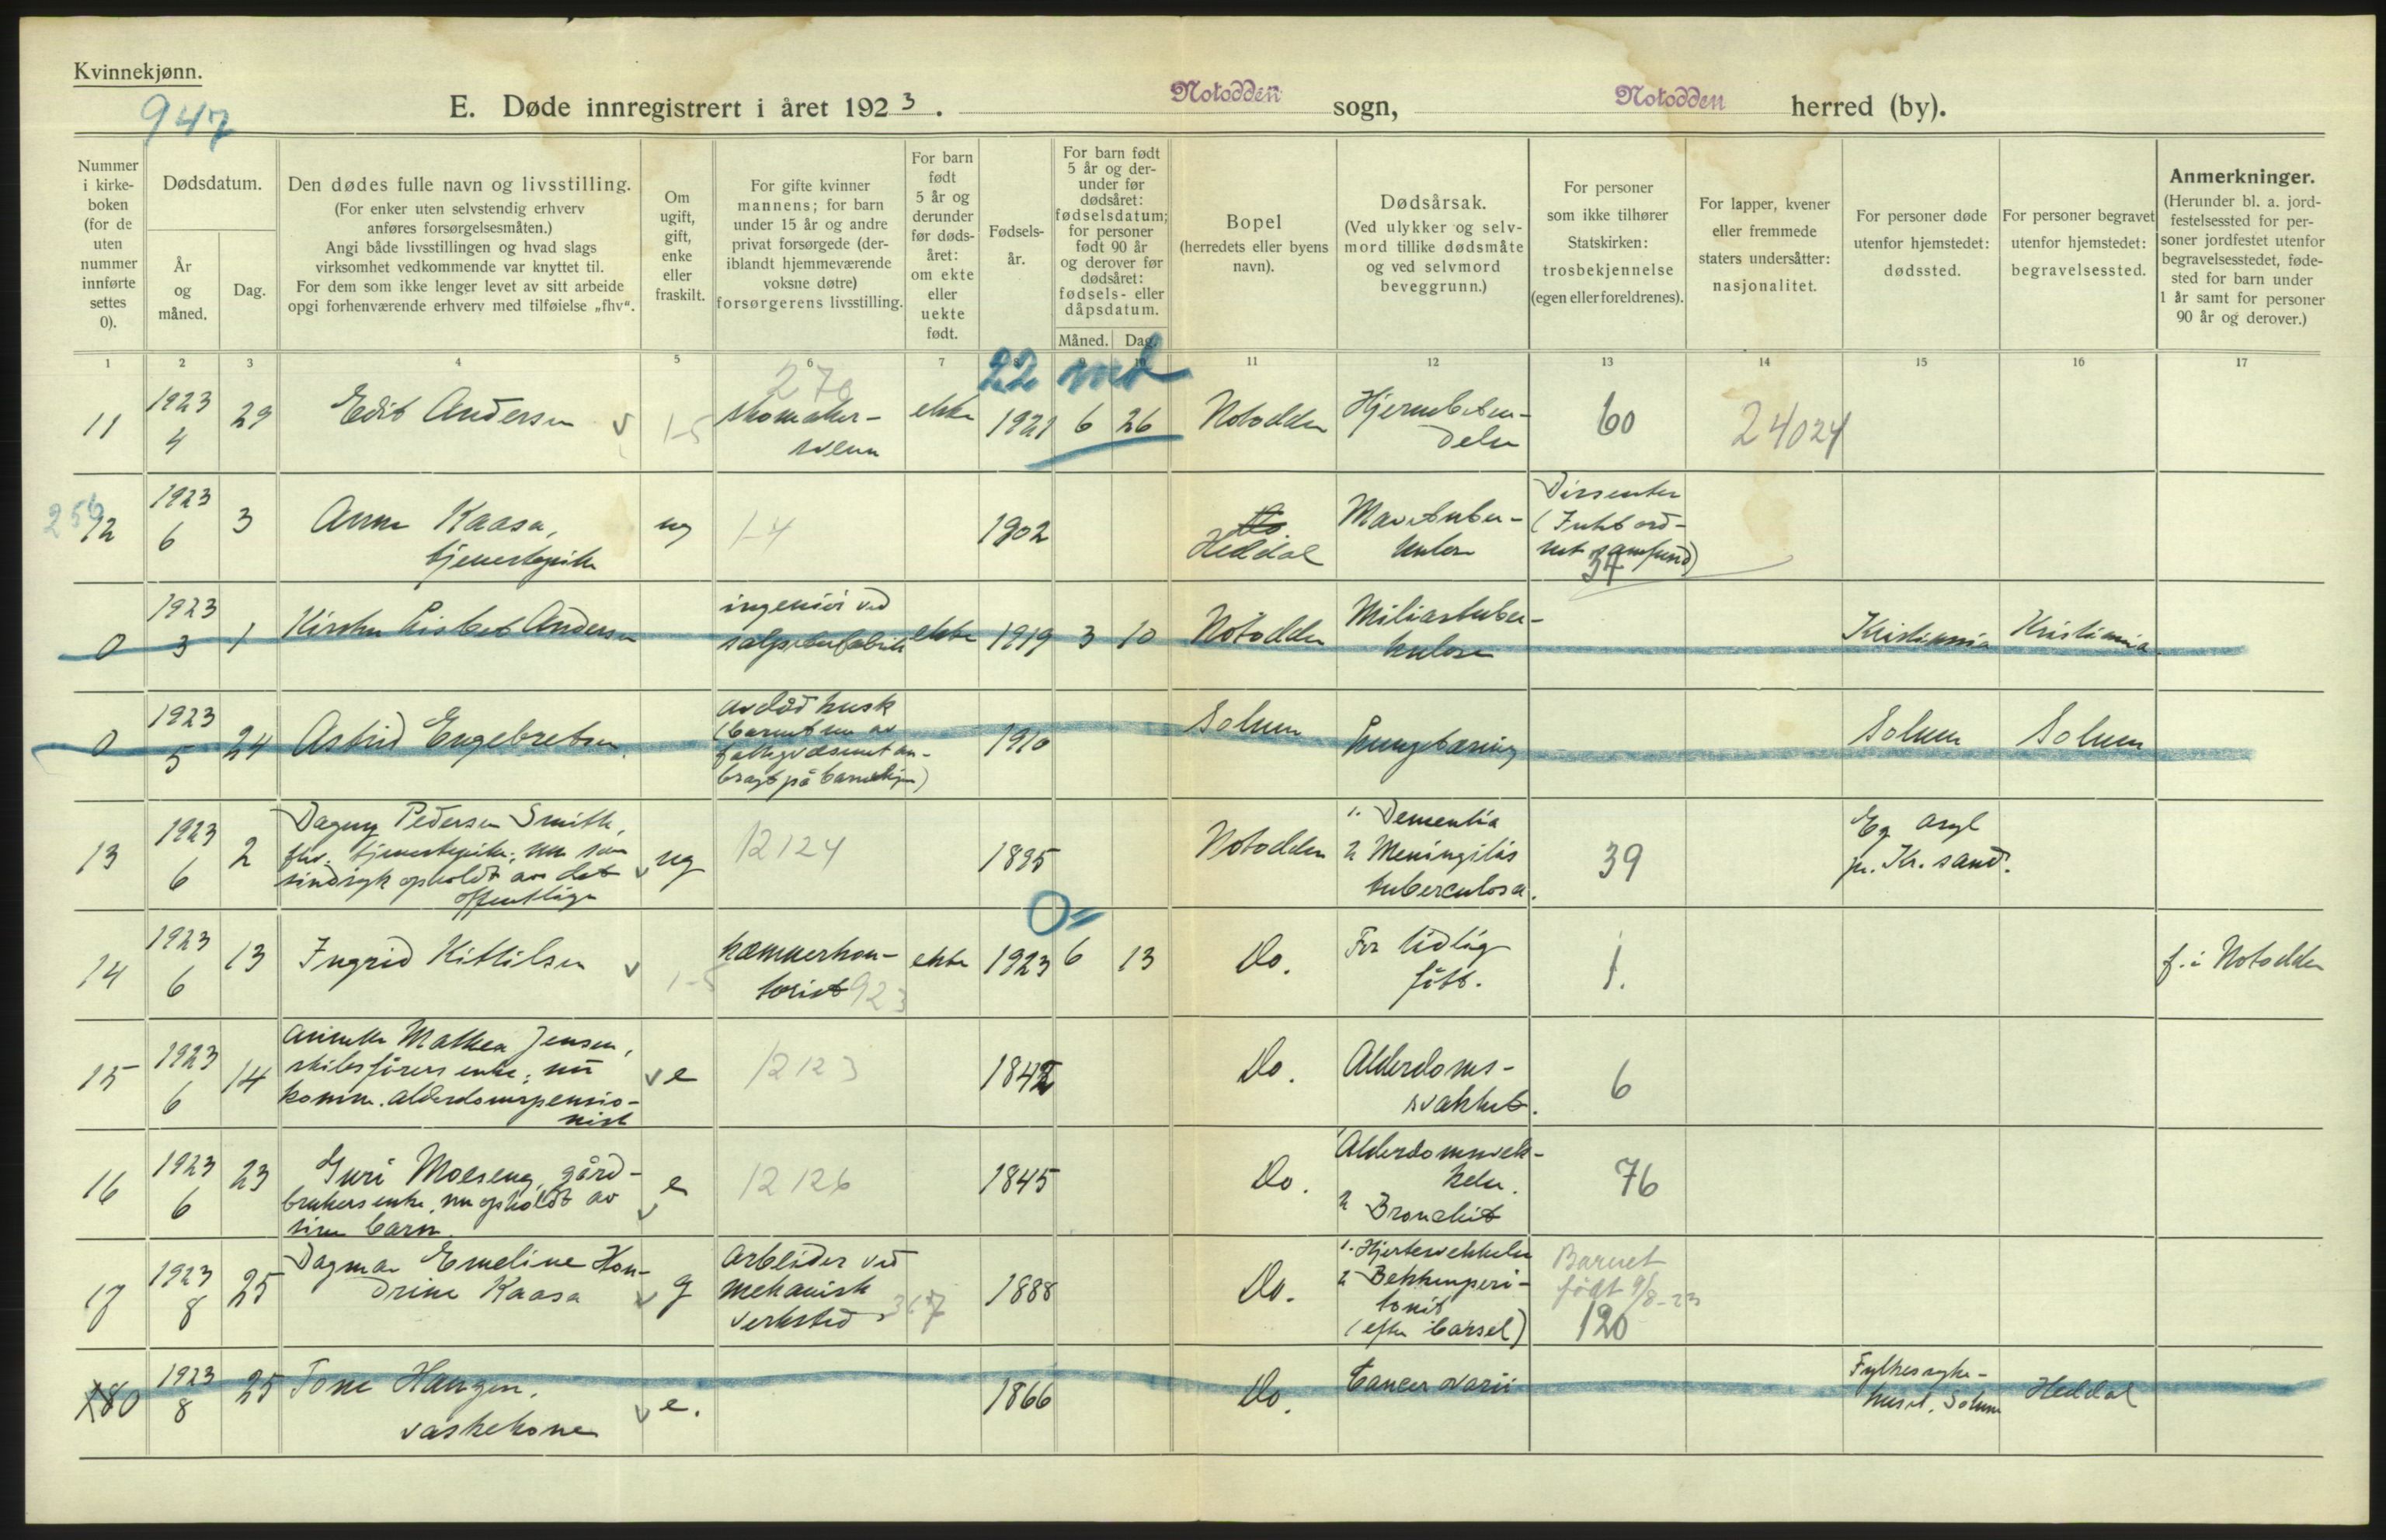 Kvinnekjønn.
947
E. Døde innregistrert i året 1923. Notodden sogn, Notodden herred (by).
Nummer i kirke- boken (for de uten nummer innførte settes 0).
Dødsdatum.
År og måned.
Dag.
Den dødes fulle navn og livsstilling.
(For enker uten selvstendig erhverv
anføres forsørgelsesmåten.)
Angi både livsstillingen og hvad slags
virksomhet vedkommende var knyttet til.
For dem som ikke lenger levet av sitt arbeide
opgi forhenværende erhverv med tilføielse „fhv“.
Om ugift, gift, enke eller fraskilt.
For gifte kvinner
mannens; for barn
under 15 år og andre
privat forsørgede (der-
iblandt hjemmeværende
voksne døtre)
forsørgerens livsstilling.
For barn født 5 år og derunder før døds- året: om ekte eller uekte født.
Fødsels- år.
For barn født
5 år og der-
under før
dødsåret:
fødselsdatum;
for personer
født 90 år
og derover før
dødsåret:
fødsels- eller
dåpsdatum.
Måned. Dag.
Bopel
(herredets eller byens
navn).
Dødsårsak.
(Ved ulykker og selv-
mord tillike dødsmåte
og ved selvmord
beveggrunn.)
For personer
som ikke tilhører
Statskirken:
trosbekjennelse
(egen eller foreldrenes).
For lapper, kvener
eller fremmede
staters undersåtter:
nasjonalitet.
For personer døde
utenfor hjemstedet:
dødssted.
For personer begravet
utenfor hjemstedet:
begravelsessted.
Anmerkninger.
(Herunder bl. a. jord-
festelsessted for per-
soner jordfestet utenfor
begravelsesstedet, føde-
sted for barn under
1 år samt for personer
90 år og derover.)
1 2 3 4 5 6 7 8 9 10 11 12 13 14 15 16 17
22 md
11 1923 4 29 Edit Andersen v 1-5 270 skomaker-
svenn ekte 1921 6 26 Notodden Hjernebeten-
delse 60 24024
256
12 1923 6 3 Anne Kaasa,
tjenestepike ug 1-4 1902 Do.
Heddal Mavetuber-
kulose Dissenter
(Frikt ord-
net samfund)
34
0 1923 3 1 Kirsten Lisbet Andersen ingeniør ved
salpeterfabrik ekte 1919 3 10 Notodden Miliartuber-
kulose Kristiania Kristiania
0 1923 5 24 Astrid Engebretsen avdød husk
av
fattigvæsenet an-
bragt på barnehjem) 1910 Solum Lungetæring Solum Solum
13 1923 6 2 Dagny Pedersen Smith,
fhv. tjenestepike; nu som
sindsyk opholdt av det
offentlige v ug 12124 1895 Notodden 1. Dementia
2 Meningitis
tuberculosa. 39 Eg asyl
pr. Kr.sand.
14 1923 6 13 Ingrid Kittilsen v 1-5 kæmnerkon-
torist 923 ekte 1923 0 6 13 Do. For tidlig
født. 1. f. i Notodden
15 1923 6 14 Mathea Jensen,
skibsførers enke; nu
komm. alderdomspensio-
nist v e 12123 1842 Do. Alderdoms-
svakhet. 6
16 1923 6 23 Guri Moeseng, gård-
brukers enke, nu opholdt av
sine barn. v e 12126 1845 Do. Alderdomssvek-
kelse.
2 Bronchit 76
17 1923 8 25 Dagmar Emeline Hen-
drine Kaasa v g Arbeider ved
mekanisk
verksted 367 1888 Do. 1. Hjertesvekkelse
2 Bekkenperi-
tonit
(efter barsel) Barnet
født 9/8-23
120
180 1923 8 25 Tone Haugen,
vaskekone v e. 1866 Do. Cancer ovarii Fylkessyke-
huset, Solum Heddal